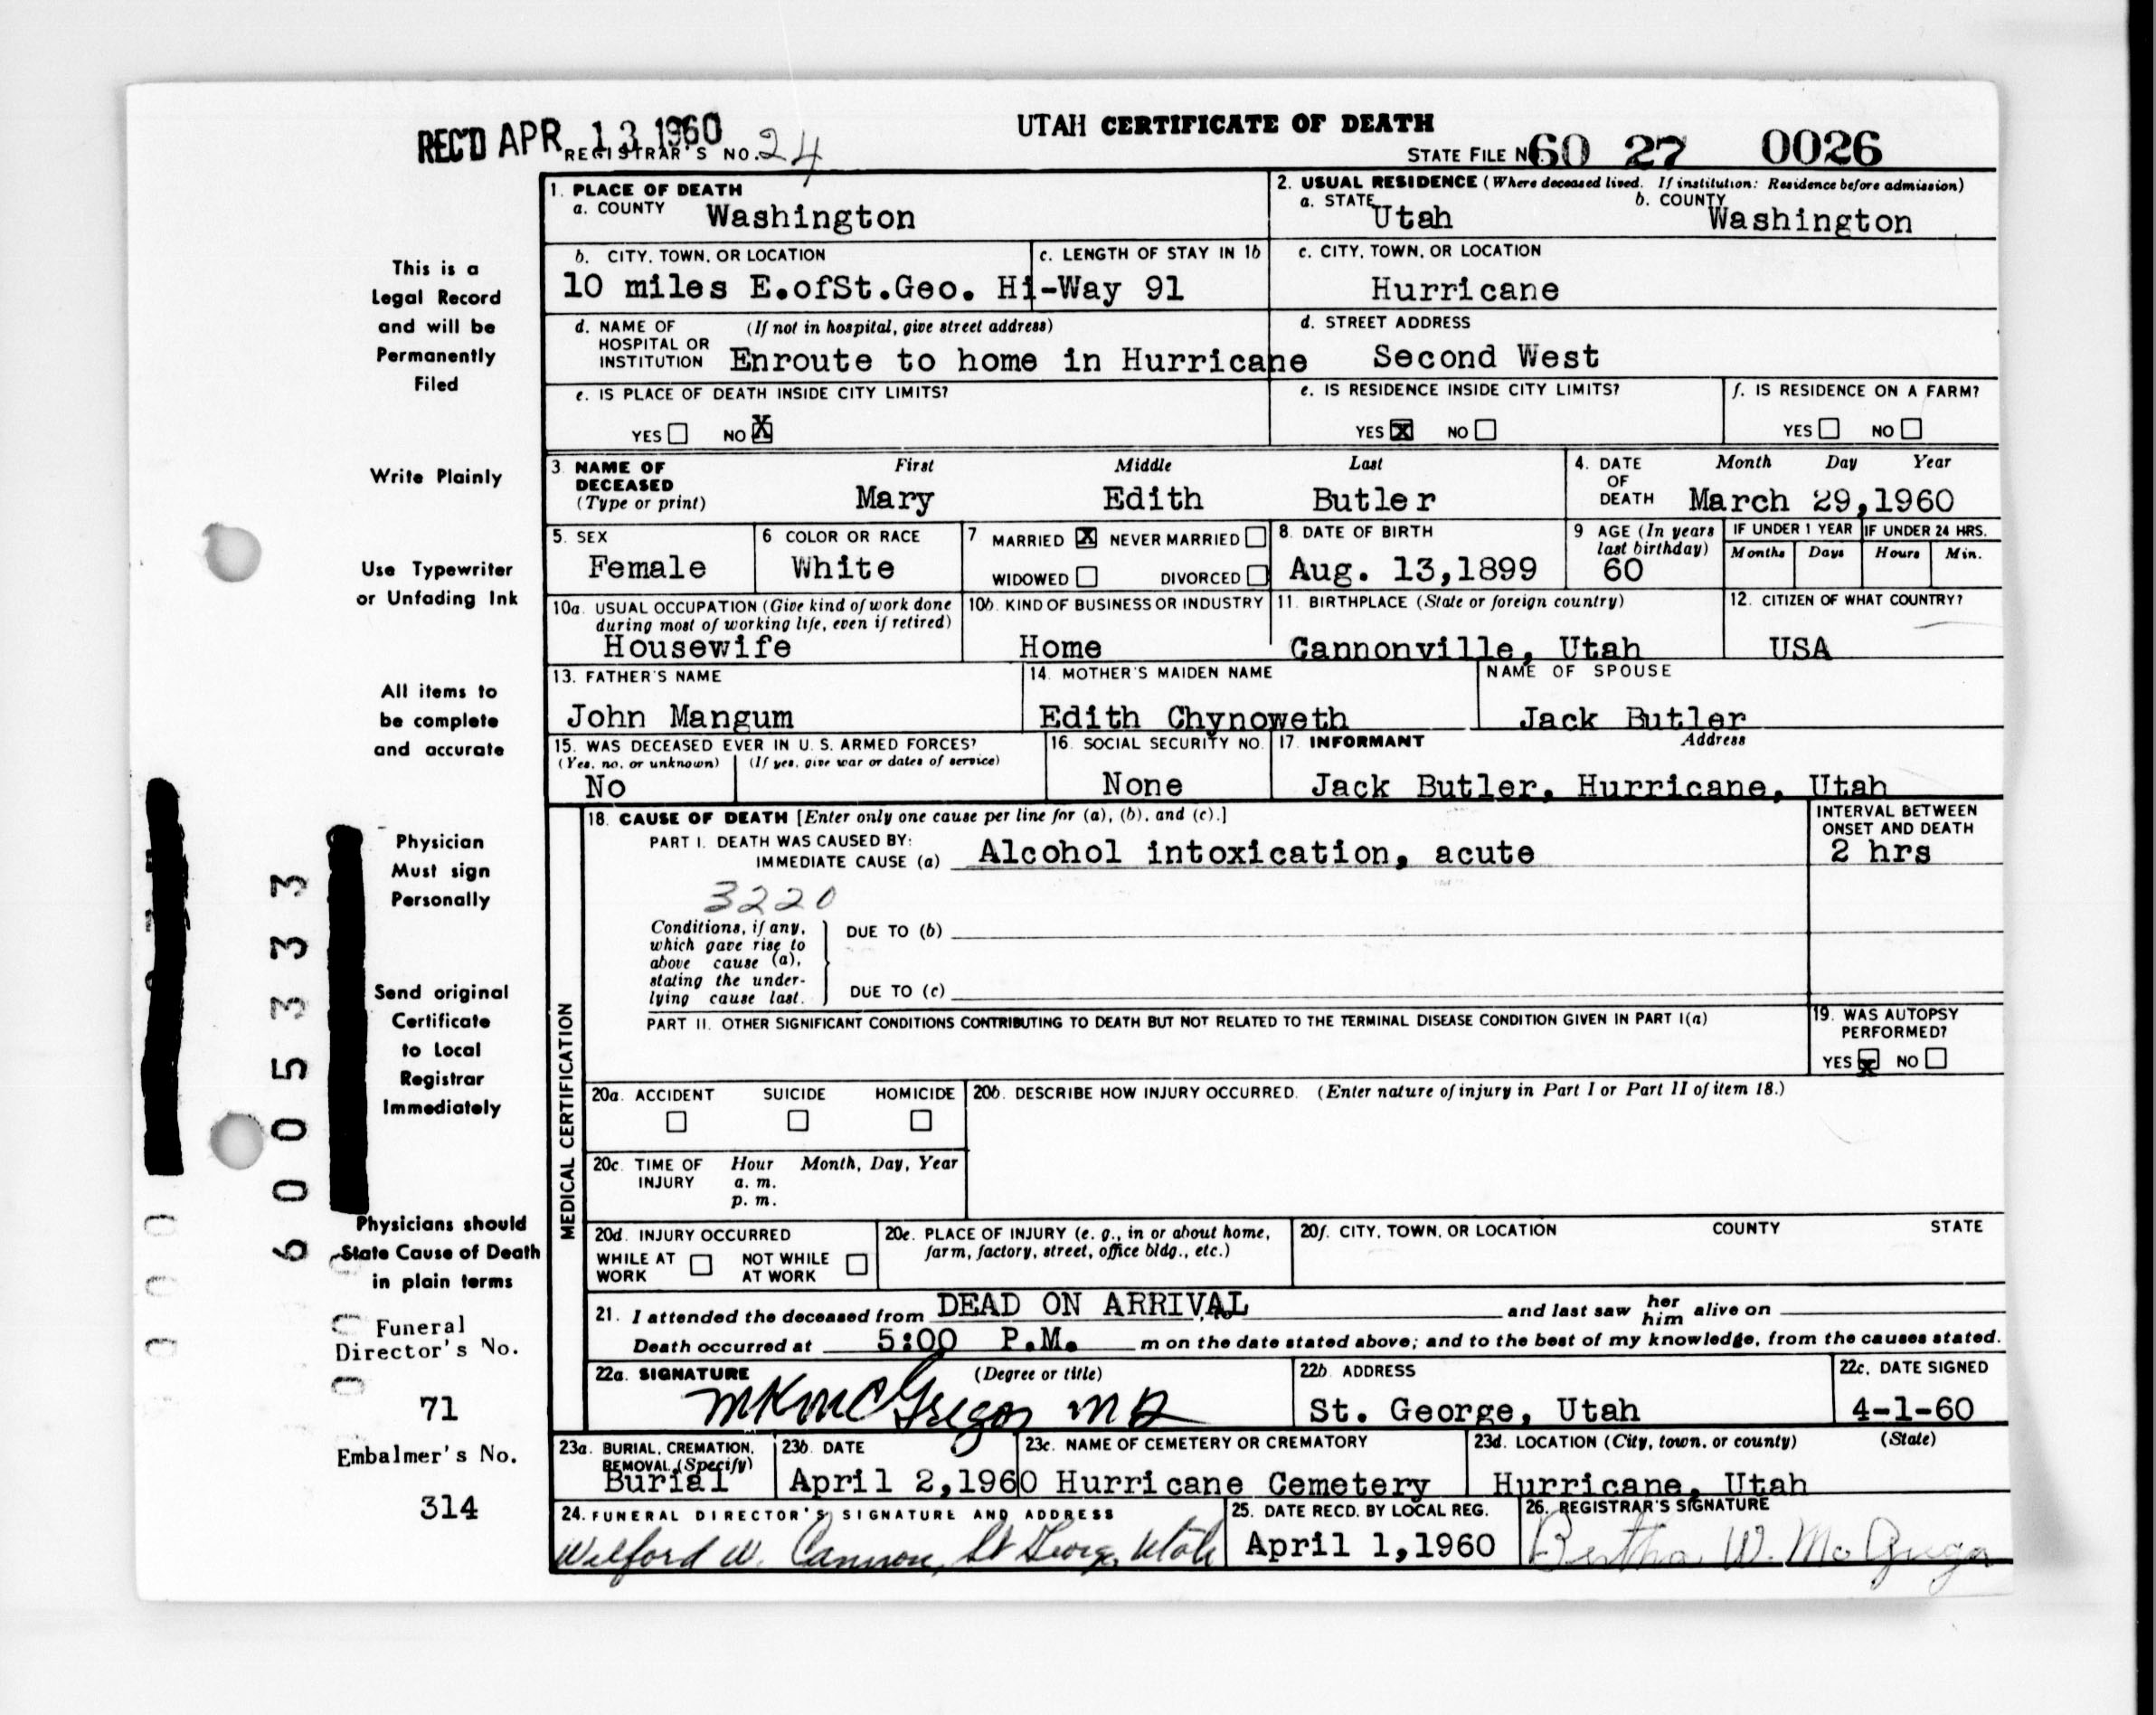 REC'D APR 13 1960
REGISTRAR'S NO. 24
UTAH CERTIFICATE OF DEATH
STATE FILE NO. 60 27 0026
1. PLACE OF DEATH
a. COUNTY Washington
2. USUAL RESIDENCE (Where deceased lived. If institution: Residence before admission)
a. STATE Utah b. COUNTY Washington
b. CITY, TOWN, OR LOCATION c. LENGTH OF STAY IN 1b
10 miles E.ofSt.Geo. Hi-Way 91
c. CITY, TOWN, OR LOCATION
Hurricane
d. NAME OF HOSPITAL OR INSTITUTION (If not in hospital, give street address)
Enroute to home in Hurricane
d. STREET ADDRESS
Second West
e. IS PLACE OF DEATH INSIDE CITY LIMITS?
YES NO X
e. IS RESIDENCE INSIDE CITY LIMITS?
YES X NO
f. IS RESIDENCE ON A FARM?
YES NO
3. NAME OF DECEASED (Type or print) First Middle Last
Mary Edith Butler
4. DATE OF DEATH Month Day Year
March 29,1960
5. SEX
Female
6 COLOR OR RACE
White
7 MARRIED X NEVER MARRIED
WIDOWED DIVORCED
8. DATE OF BIRTH
Aug. 13,1899
9 AGE (In years last birthday)
60
IF UNDER 1 YEAR IF UNDER 24 HRS.
Months Days Hours Min.
10a. USUAL OCCUPATION (Give kind of work done during most of working life, even if retired)
Housewife
10b. KIND OF BUSINESS OR INDUSTRY
Home
11. BIRTHPLACE (State or foreign country)
Cannonville, Utah
12. CITIZEN OF WHAT COUNTRY?
USA
13. FATHER'S NAME
John Mangum
14. MOTHER'S MAIDEN NAME
Edith Chynoweth
NAME OF SPOUSE
Jack Butler
15. WAS DECEASED EVER IN U. S. ARMED FORCES?
(Yes, no, or unknown) (If yes, give war or dates of service)
No
16. SOCIAL SECURITY NO.
None
17. INFORMANT Address
Jack Butler, Hurricane, Utah
MEDICAL CERTIFICATION
18. CAUSE OF DEATH [Enter only one cause per line for (a), (b), and (c).]
PART I. DEATH WAS CAUSED BY:
IMMEDIATE CAUSE (a) Alcohol intoxication, acute
INTERVAL BETWEEN ONSET AND DEATH
2 hrs
3220
Conditions, if any, which gave rise to above cause (a), stating the underlying cause last.
DUE TO (b)
DUE TO (c)
PART II. OTHER SIGNIFICANT CONDITIONS CONTRIBUTING TO DEATH BUT NOT RELATED TO THE TERMINAL DISEASE CONDITION GIVEN IN PART I(a)
19. WAS AUTOPSY PERFORMED?
YES X NO
20a. ACCIDENT SUICIDE HOMICIDE
20b. DESCRIBE HOW INJURY OCCURRED. (Enter nature of injury in Part I or Part II of item 18.)
20c. TIME OF INJURY Hour Month, Day, Year
a. m.
p. m.
20d. INJURY OCCURRED
WHILE AT WORK NOT WHILE AT WORK
20e. PLACE OF INJURY (e. g., in or about home, farm, factory, street, office bldg., etc.)
20f. CITY, TOWN, OR LOCATION COUNTY STATE
21. I attended the deceased from DEAD ON ARRIVAL, to and last saw her him alive on
Death occurred at 5:00 P.M. m on the date stated above; and to the best of my knowledge, from the causes stated.
22a. SIGNATURE (Degree or title)
MK McGregor MD
22b. ADDRESS
St. George, Utah
22c. DATE SIGNED
4-1-60
23a. BURIAL, CREMATION, REMOVAL (Specify)
Burial
23b. DATE
April 2,1960
23c. NAME OF CEMETERY OR CREMATORY
Hurricane Cemetery
23d. LOCATION (City, town, or county) (State)
Hurricane, Utah
24. FUNERAL DIRECTOR'S SIGNATURE AND ADDRESS
Wilford W. Cannon, St George, Utah
25. DATE RECD. BY LOCAL REG.
April 1,1960
26. REGISTRAR'S SIGNATURE
Bertha W. McGregor
This is a
Legal Record
and will be
Permanently
Filed
Write Plainly
Use Typewriter
or Unfading Ink
All items to
be complete
and accurate
Physician
Must sign
Personally
Send original
Certificate
to Local
Registrar
Immediately
Physicians should
State Cause of Death
in plain terms
Funeral
Director's No.
71
Embalmer's No.
314
6005333